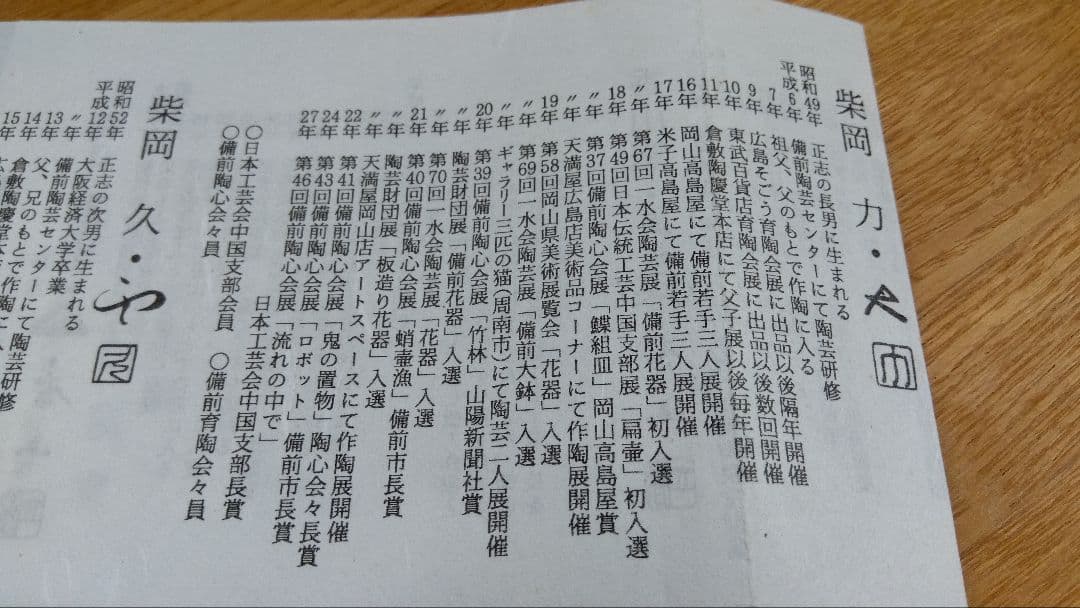 柴岡 力・
昭和49年 正志の長男に生まれる
平成6年 備前陶芸センターにて陶芸研修
7年 祖父、父のもとで作陶に入る
9年 広島そごう育陶会展に出品以後隔年開催
10年 東武百貨店育陶会展に出品以後数回開催
11年 倉敷陶慶堂本店にて父子展以後毎年開催
16年 岡山高島屋にて備前若手三人展開催
17年 米子高島屋にて備前若手三人展開催
〃年 第67回一水会陶芸展「備前花器」初入選
18年 第49回日本伝統工芸中国支部展「扁壷」初入選
〃年 第37回備前陶心会展「鰈組皿」岡山高島屋賞
19年 天満屋広島店美術品コーナーにて作陶展開催
〃年 第58回岡山県美術展覧会「花器」入選
〃年 第69回一水会陶芸展「備前大鉢」入選
〃年 ギャラリー三匹の猫(周南市)にて陶芸二人展開催
20年 第39回備前陶心会展「竹林」山陽新聞社賞
〃年 陶芸財団展「備前花器」入選
〃年 第70回一水会陶芸展「花器」入選
21年 第40回備前陶心会展「蛸壷漁」備前市長賞
〃年 陶芸財団展「板造り花器」入選
〃年 天満屋岡山店アートスペースにて作陶展開催
22年 第41回備前陶心会展「鬼の置物」陶心会々長賞
24年 第43回備前陶心会展「ロボット」備前市長賞
27年 第46回備前陶心会展「流れの中で」
日本工芸会中国支部長賞
○日本工芸会中国支部会員 ○備前育陶会々員
○備前陶心会々員
柴岡 久・
昭和52年 正志の次男に生まれる
平成12年 大阪経済大学卒業
〃年 備前陶芸センターにて陶芸研修
13年 父、兄のもとで作陶に入
14年 倉敷陶慶堂本
15年